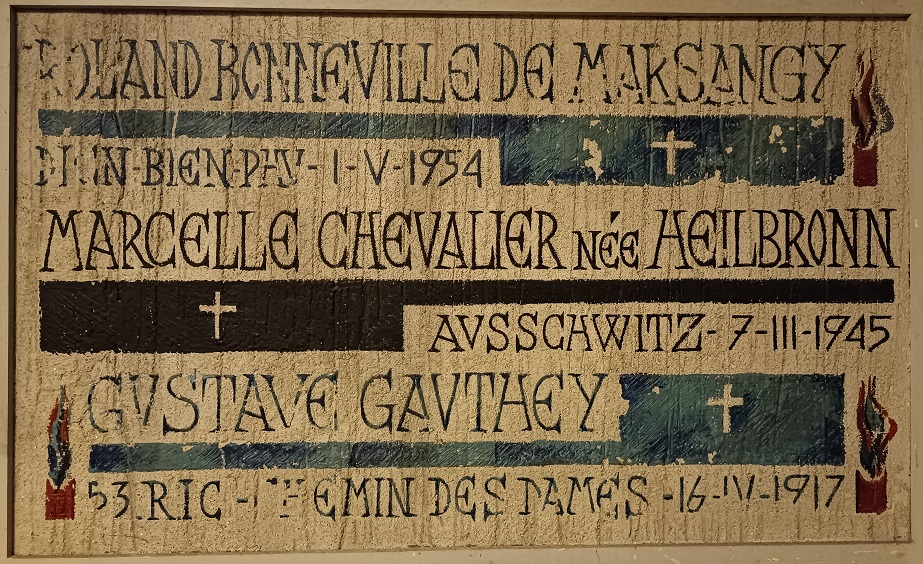 ROLAND BONNEVILLE DE MARSANGY
DIÊN-BIEN-PHV-1-V-1954
MARCELLE CHEVALIER NÉE HEILBRONN
AVSSCHWITZ-7-III-1945
GVSTAVE GAVTHEY
53.RIC - CHEMIN DES DAMES -16-IV-1917